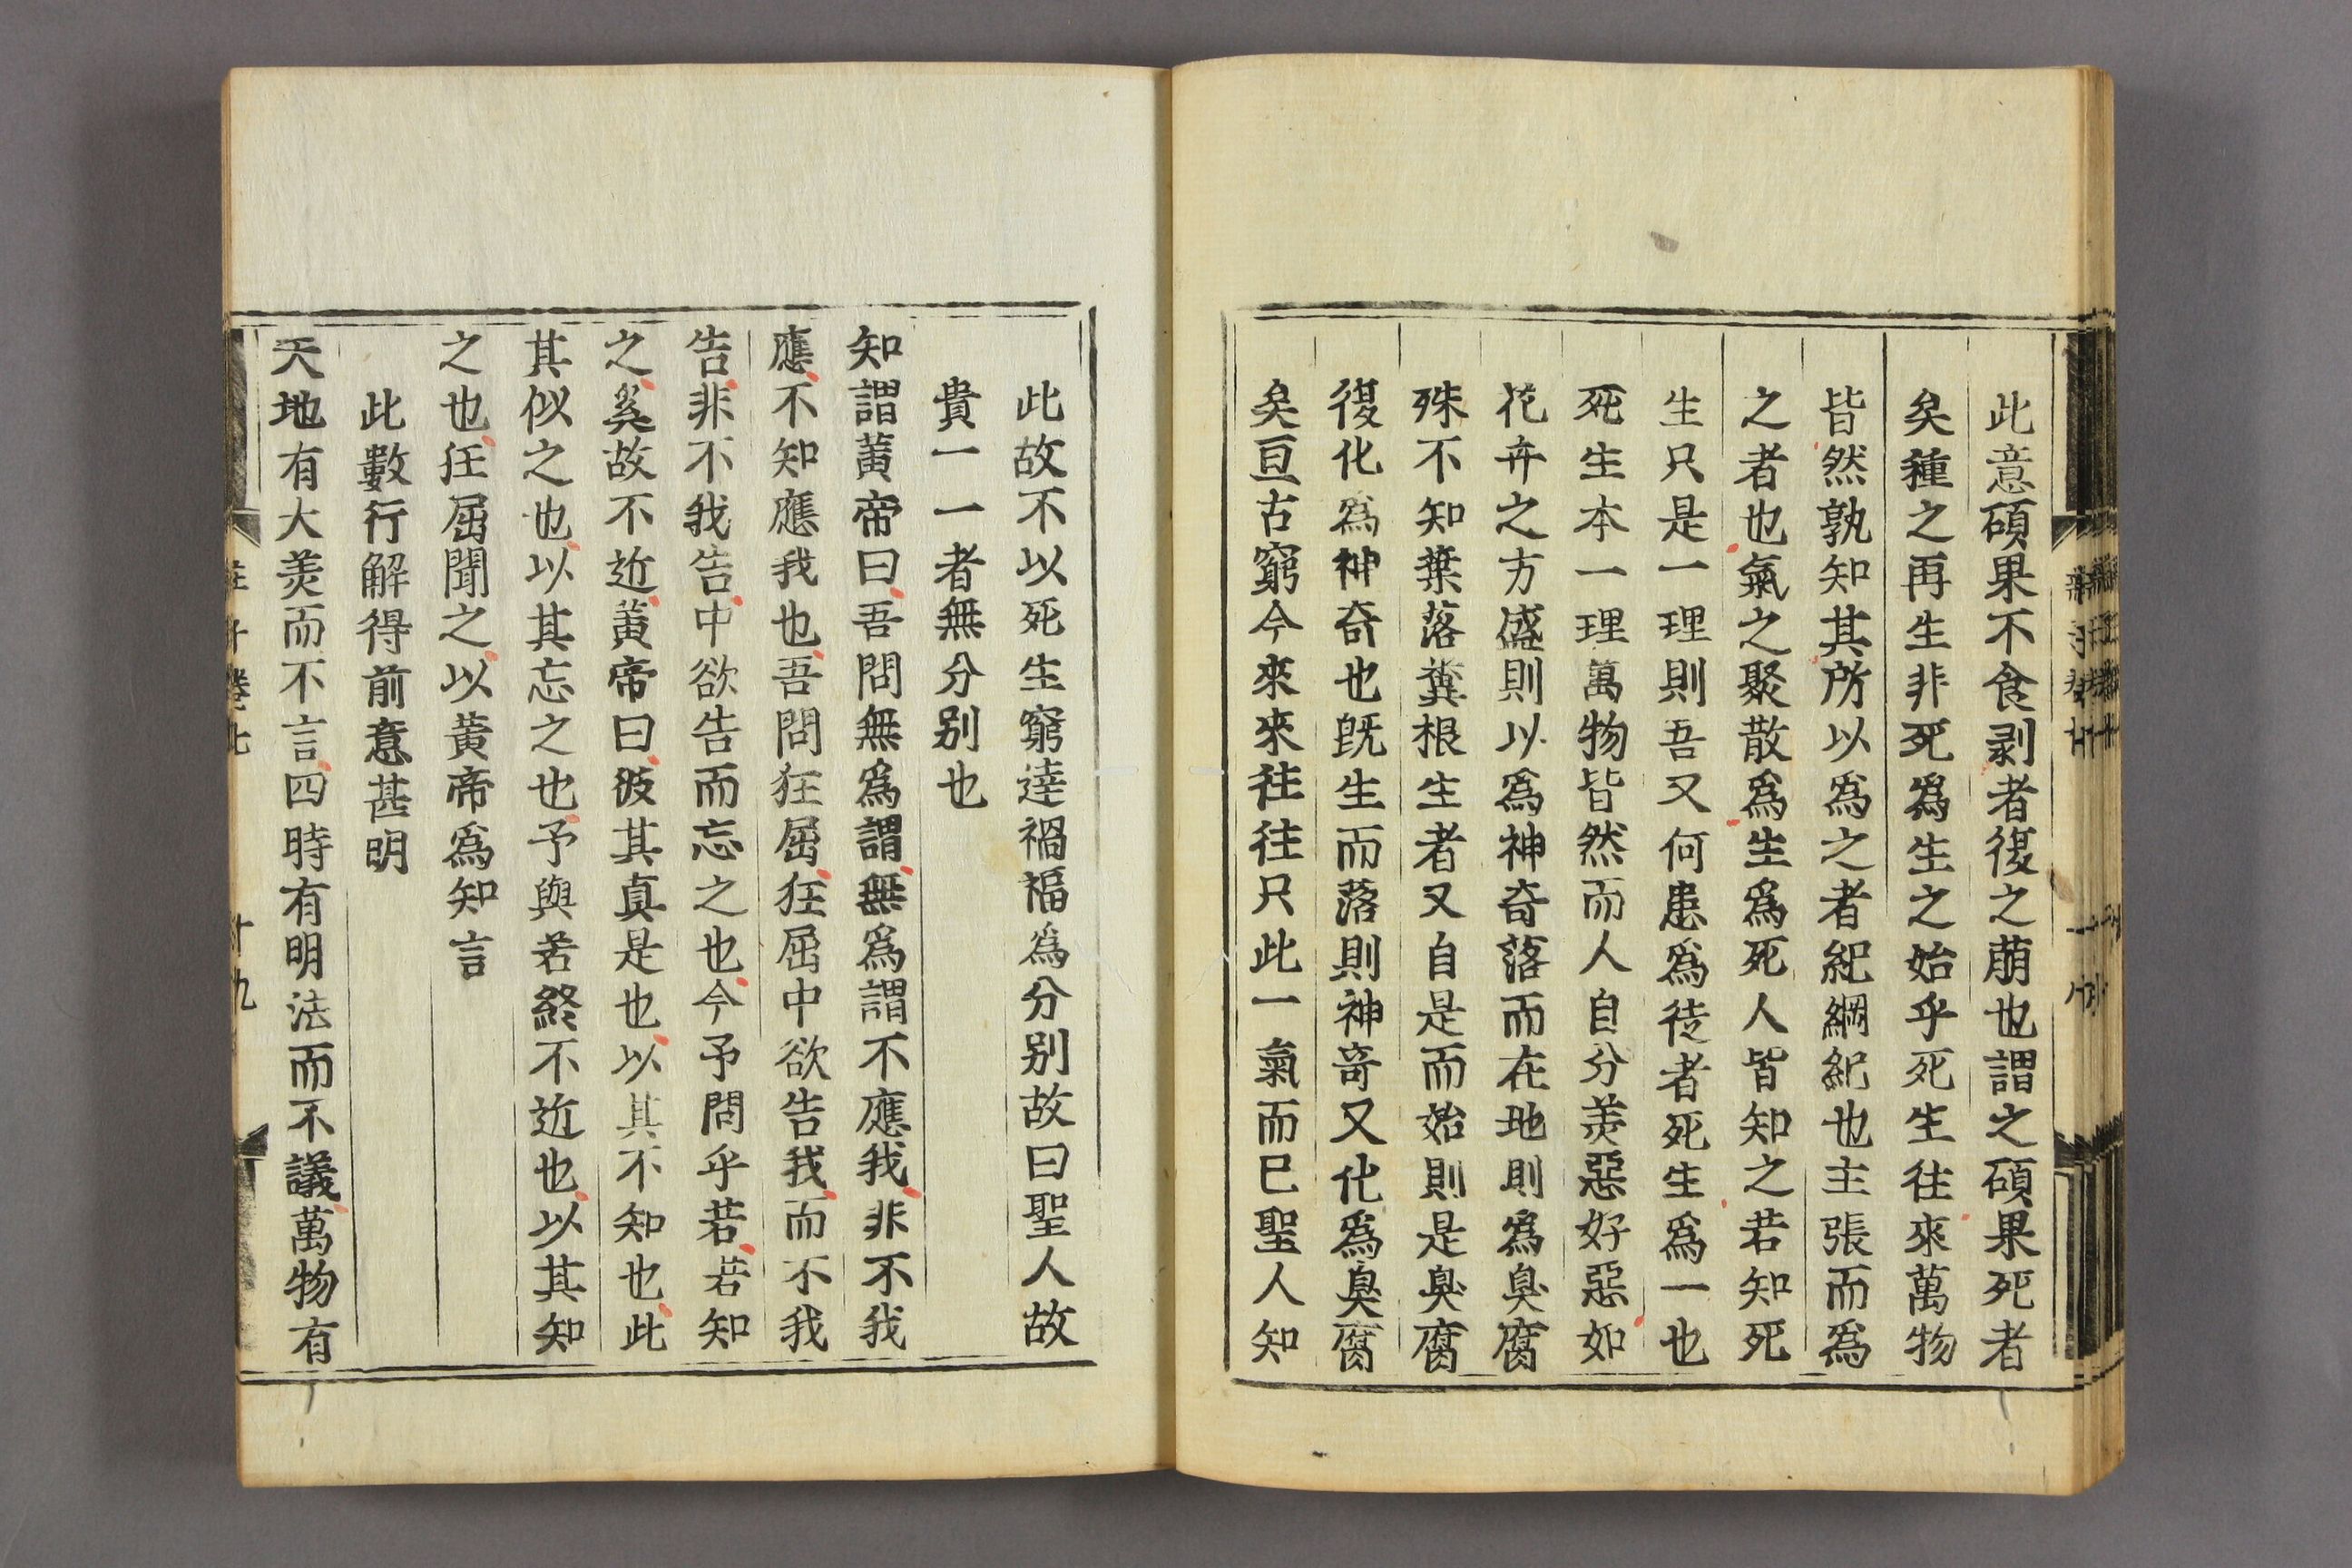 此意碩果不食剥者復之萠也謂之碩果死者
矣種之再生非死爲生之始乎死生往來萬物
皆然孰知其所以爲之者紀綱紀也主張而爲
之者也氣之聚散爲生爲死人皆知之若知死
生只是一理則吾又何患爲徒者死生爲一也
死生本一理萬物皆然而人自分羙惡好惡如
花卉之方盛則以爲神奇落而在地則爲臭腐
殊不知葉落糞根生者又自是而始則是臭腐
復化爲神奇也旣生而落則神竒又化爲臭腐
矣亘古窮今來來往往只此一氣而已聖人知
此故不以死生窮達禍福爲分别故曰聖人故
貴一一者無分别也
知謂黄帝曰吾問無爲謂無爲謂不應我非不我
應不知應我也吾問狂屈狂屈中欲告我而不我
告非不我告中欲告而忘之也今予問乎若若知
之奚故不近黄帝曰彼其真是也以其不知也此
其似之也以其忘之也予與若終不近也以其知
之也狂屈聞之以黄帝爲知言
此數行解得前意甚明
天地有大羙而不言四時有明法而不議萬物有
十九